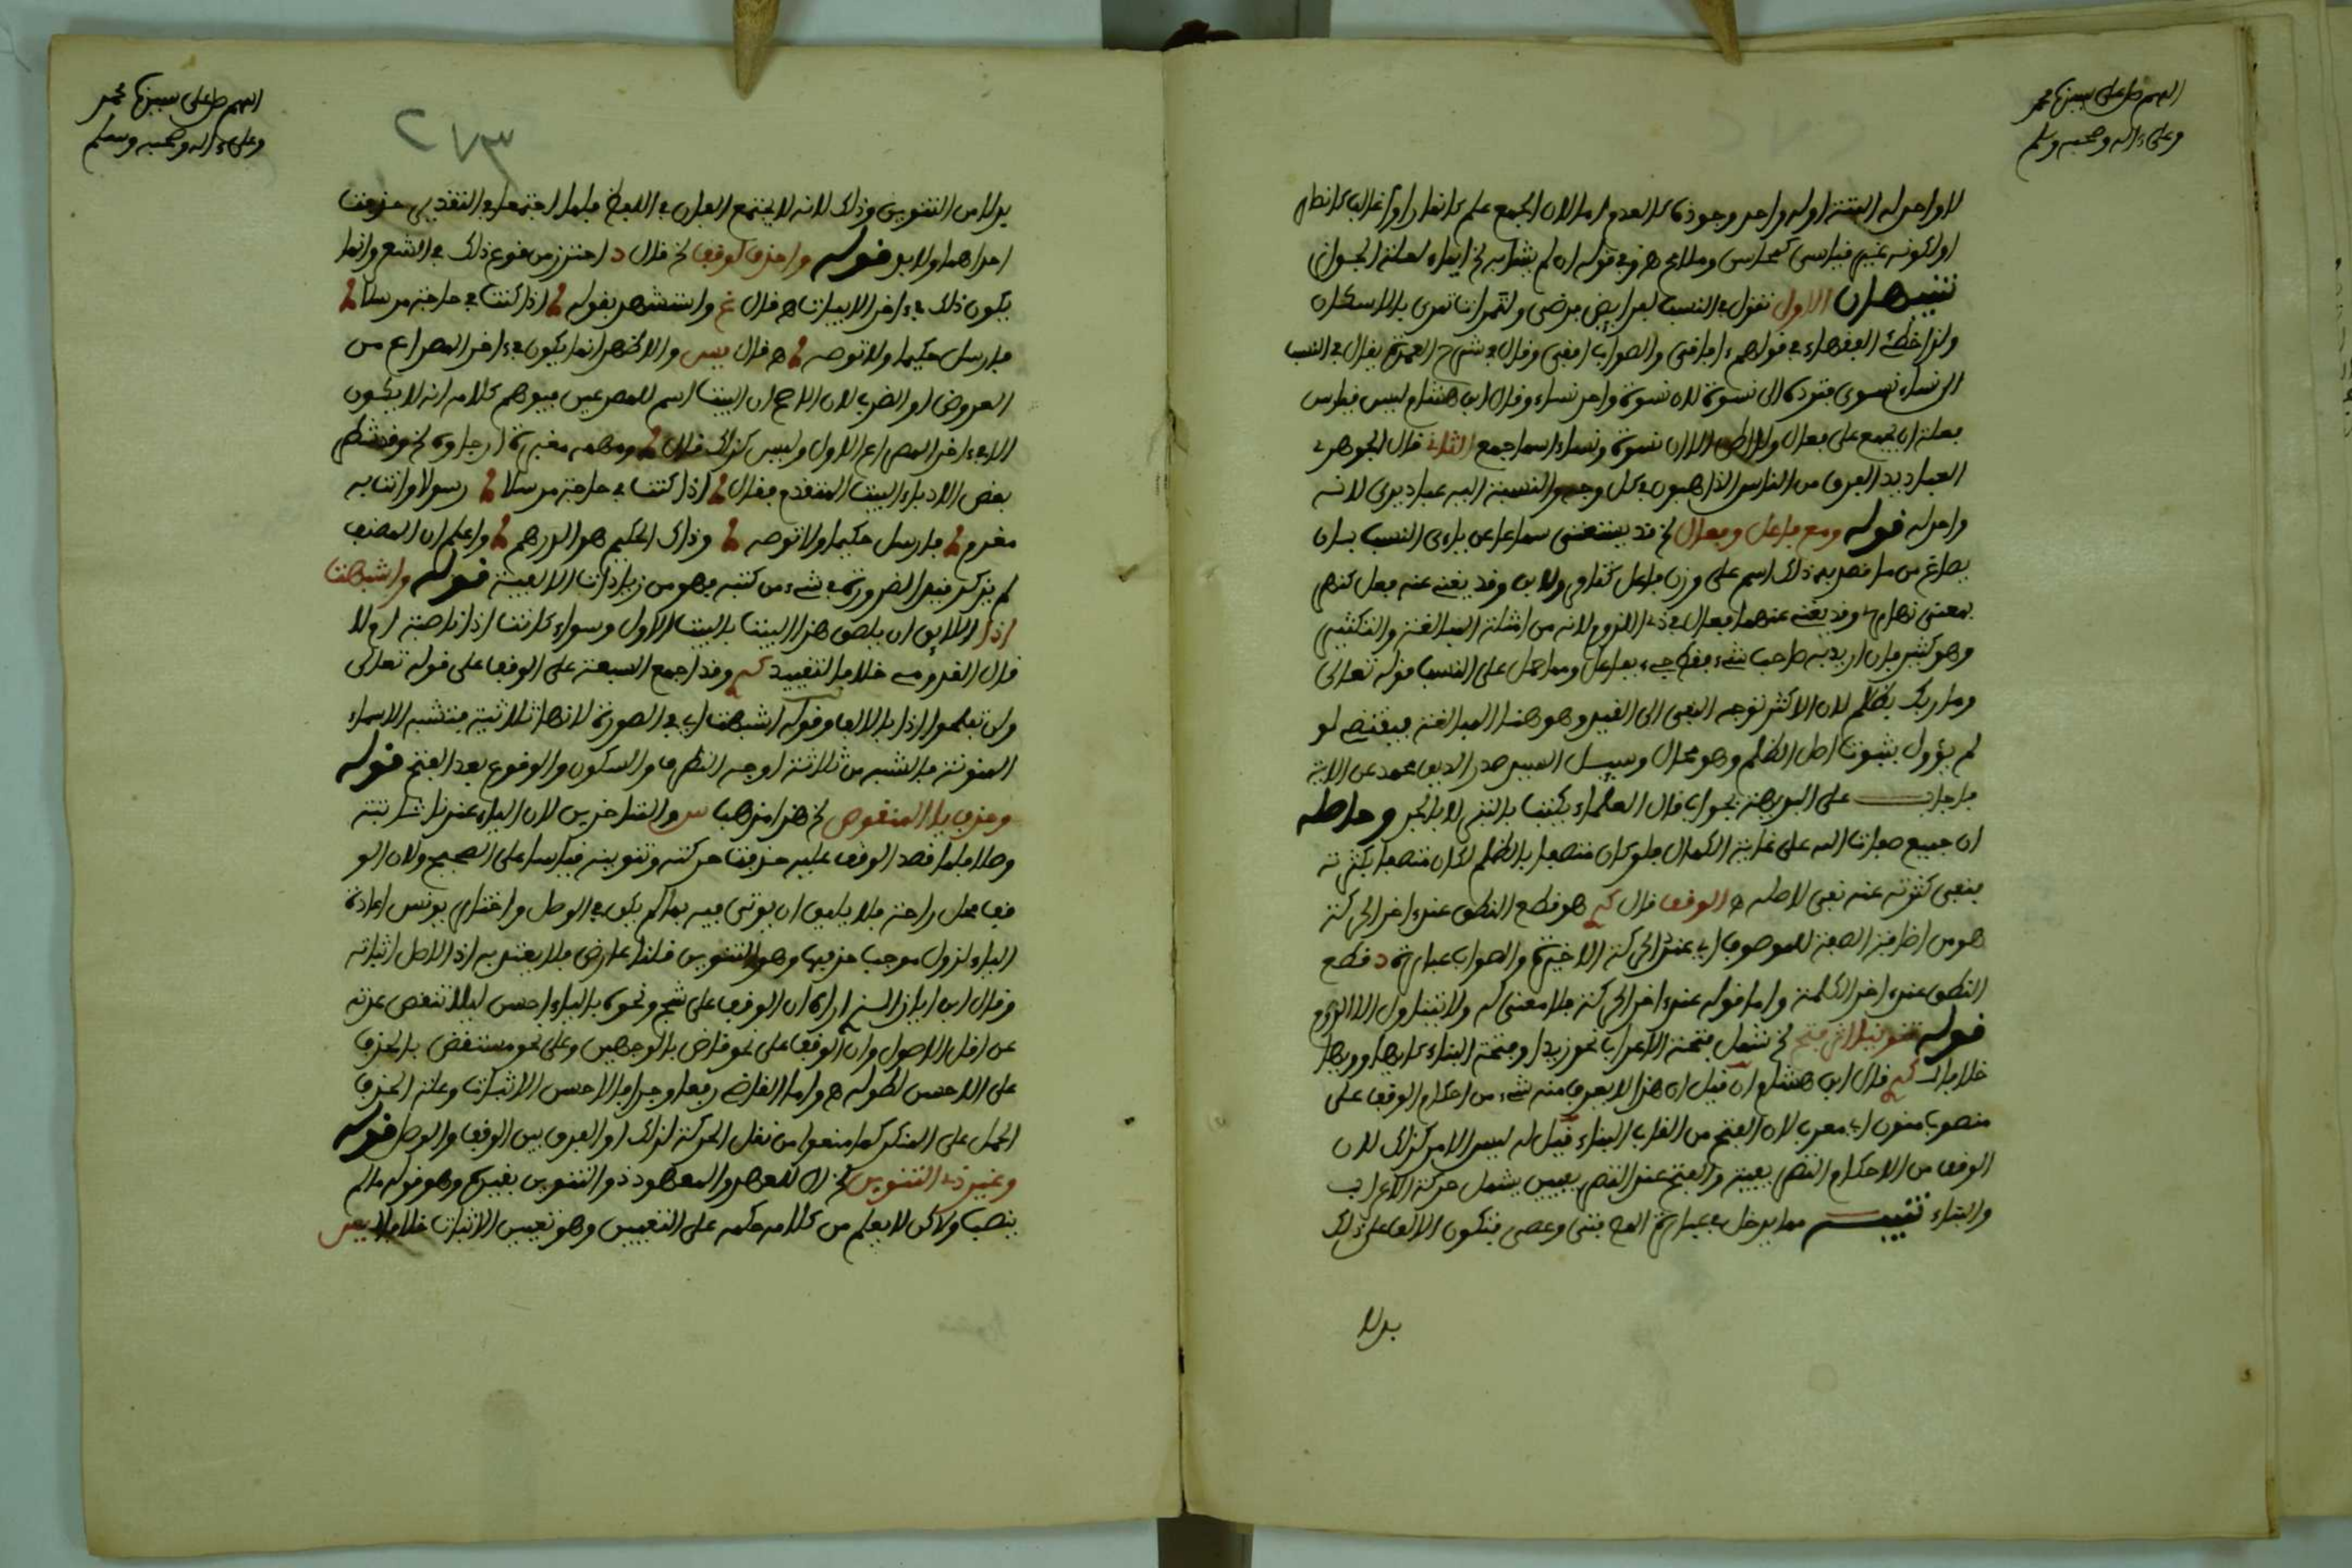 اللهم صل على سيدنا محمد
وعلى ءاله وصحبه وسلم
لا واحد له البتة او له واحد وجوده كالعدم اما لان الجمع علم كانمار او غالب كانصار
او لكونه غير قياسي كمحاسن وملامح وفي قوله ان لم يشابه الخ ايماء لعلة الجواز
تنبيهان الاول تقول في النسب لفرايض فرضي ولتمرات تمري بالاسكان
ولذا خطئ الفقهاء في قولهم ءافاقي والصواب افقي وقال في شرح العمدة يقال في النسب
الى نساء نسوي فترده الى نسوة لان نسوة واحد نساء وقال ابن هشام ليس قياس
فعلة ان تجمع على فعال الا ان نسوة ونساء اسما جمع الثاني قال الجوهري
العباديد الفرق من الناس الذاهبون في كل وجه والنسبة اليه عباديدي لانه لا
واحد له قوله ومع فاعل وفعال الخ قد يستغنى سماعا عن ياءي النسب بان
يصاغ من ما قصد به ذلك اسم على وزن فاعل كتامر ولابن وقد يغني عنه فعل كنهر
بمعنى نهاري وقد يغني عنهما فعال في ذي اللزوم لانه من امثلة المبالغة والتكثير
وهو كثير فان اريد به صاحب شيء فقط جيء بفاعل ومما حمل على النسب قوله تعالى
وما ربك بظلام لان الاكثر توجه النفي الى القيد وهو هنا المبالغة فيقتضي لو
لم يؤول ثبوت اصل الظلم وهو محال وسيل السيد صدر الدين محمد عن الاية
فاجاب على البديهة بجواب قال العلماء يكتب بالتبر لا بالحبر وحاصله
ان جميع صفات الله على غاية الكمال فلو كان متصفا بالظلم لكان متصفا بكثرته
فنفى كثرته عنه نفي لاصله ه الوقف قال هو قطع النطق عند ءاخر الحركة
هو من اضافة الصفة للموصوف اي عند الحركة الاخيرة والصواب عبارة د قطع
النطق عند ءاخر الكلمة واما قوله عند ءاخر الحركة فلا معنى له ولا يتناول الا الروم
قوله تنوينا اثر فتح الخ شمل فتحة الاعراب نحو زيدا وفتحة البناء كايها وويها
خلافا قال ابن هشام ان قيل ان هذا لا يعرف منه شيء من احكام الوقف على
منصوب منون اي معرب لان الفتح من القاب البناء قيل له ليس الامر كذلك لان
الوقف من الاحكام التصريفية والفتح عند التصريفيين يشمل حركة الاعراب
والبناء تنبيه مما يدخل في عبارة المص فتى وعصى فتكون الالف على ذلك
بدلا
اللهم صل على سيدنا محمد
وعلى ءاله وصحبه وسلم
٢٧٣
بدلا من التنوين وذلك لانه لا يجتمع الفان في اللفظ فلما اجتمعا في التقدير حذفت
احداهما ولا بد قوله واحذف لوقف الخ قال د احترز من وقوع ذلك في الشعر وانما
يكون ذلك في ءاخر الابيات ه قال غ واستشهر بقوله اذا كنت في حاجة مرسلا
فارسل حكيما ولا توصه ه قال يس والاظهر انما يكون في ءاخر المصراع من
العروض او الضرب لان الراجح ان البيت اسم للمصرعين فيوهم كلامه انه لا يكون
الا في ءاخر المصراع الاول وليس كذلك قال ومهمه مغبرة ارجاؤه الخ وقد شطر
بعض الادباء البيت المتقدم فقال اذا كنت في حاجة مرسلا رسولا وانت به
مغرم فارسل حكيما ولا توصه وذاك الحكيم هو الدرهم واعلم ان المصنف
لم يذكر قيد الضرورة في شيء من كتبه فهو من زيادات الالفية قوله واشبهت
اذا اللايق ان يلصق هذا البيت بالبيت الاول وسواء كانت اذا ناصبة ام لا
قال القدومي خلافا لتقييد وقد اجمع السبعة على الوقف على قوله تعالى
ولن تفلحوا اذا بالالف وقوله اشبهت اي في الصورة لانها ثلاثية فتشبه الاسماء
المنونة فالشبه من ثلاثة اوجه التطرف والسكون والوقوع بعد الفتح قوله
وحذف يا المنقوص الخ هذا مذهب س والمتاخرين لان الياء عندنا ثابتة
وصلا فلما قصد الوقف عليه حذفت حركته وتنوينه قياسا على الصحيح ولان الو
قف محل راحة فلا يليق ان يوتى فيه بما لم يكن في الوصل واختار يونس اعادة
الياء لزوال موجب حذفها وهو التنوين قلنا عارض فلا يعتد به اذ الاصل اثباته
وقال ابن اياز الذي اراه ان الوقف على شج ونحوه بالياء احسن ليلا تنقص عدته
عن اقل الاصول وان الوقف على نحو قاض بالوجهين وعلى نحو مستقض بالحذف
على الاحسن لطوله ه واما القاضي رفعا وجرا فالاحسن الاثبات وعلة الحذف
الحمل على المنكر كما منعوا من نقل الحركة لذلك او الفرق بين الوقف والوصل قوله
وغير ذي التنوين الخ ال للعهد والمعهود ذو التنوين بقيده وهو قوله مالم
ينصب ولاكن لا يعلم من كلامه حكمه على التعيين وهو تعيين الاثبات خلافا ليس